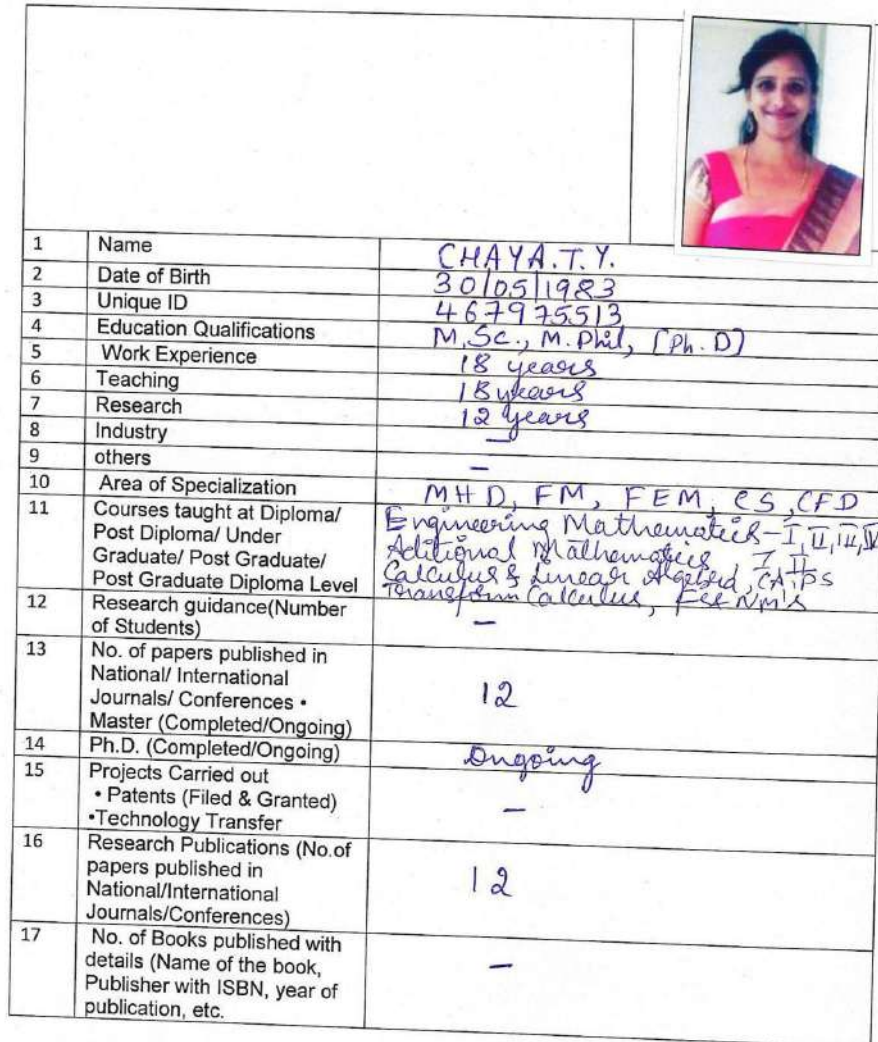 1 Name CHAYA.T.Y.
2 Date of Birth 30/05/1983
3 Unique ID 467975513
4 Education Qualifications M.Sc., M.Phil, [Ph.D]
5 Work Experience 18 years
6 Teaching 18 years
7 Research 12 years
8 Industry –
9 others –
10 Area of Specialization MHD, FM, FEM, CS, CFD
11 Courses taught at Diploma/ Engineering Mathematics-I, II, III, IV
Post Diploma/ Under Aditional Mathematics I, II
Graduate/ Post Graduate/ Calculus & Linear Algebra, CA, PS
Post Graduate Diploma Level Transform Calculus,
12 Research guidance(Number –
of Students)
13 No. of papers published in
National/ International
Journals/ Conferences • 12
Master (Completed/Ongoing)
14 Ph.D. (Completed/Ongoing) Ongoing
15 Projects Carried out
• Patents (Filed & Granted) –
•Technology Transfer
16 Research Publications (No.of
papers published in 12
National/International
Journals/Conferences)
17 No. of Books published with
details (Name of the book, –
Publisher with ISBN, year of
publication, etc.